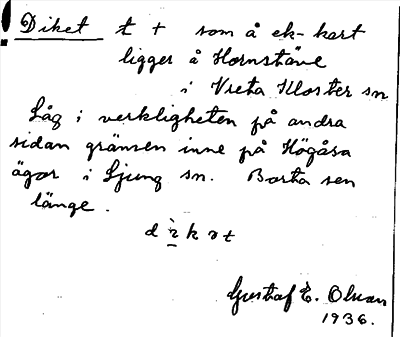 Diket t + som å ek-kart
ligger å Hornstäve
i Vreta Kloster sn
Låg i verkligheten på andra
sidan gränsen inne på Högåsa
ägor i Ljung sn. Borta sen
länge.
Gustaf E. Olsson
1936.